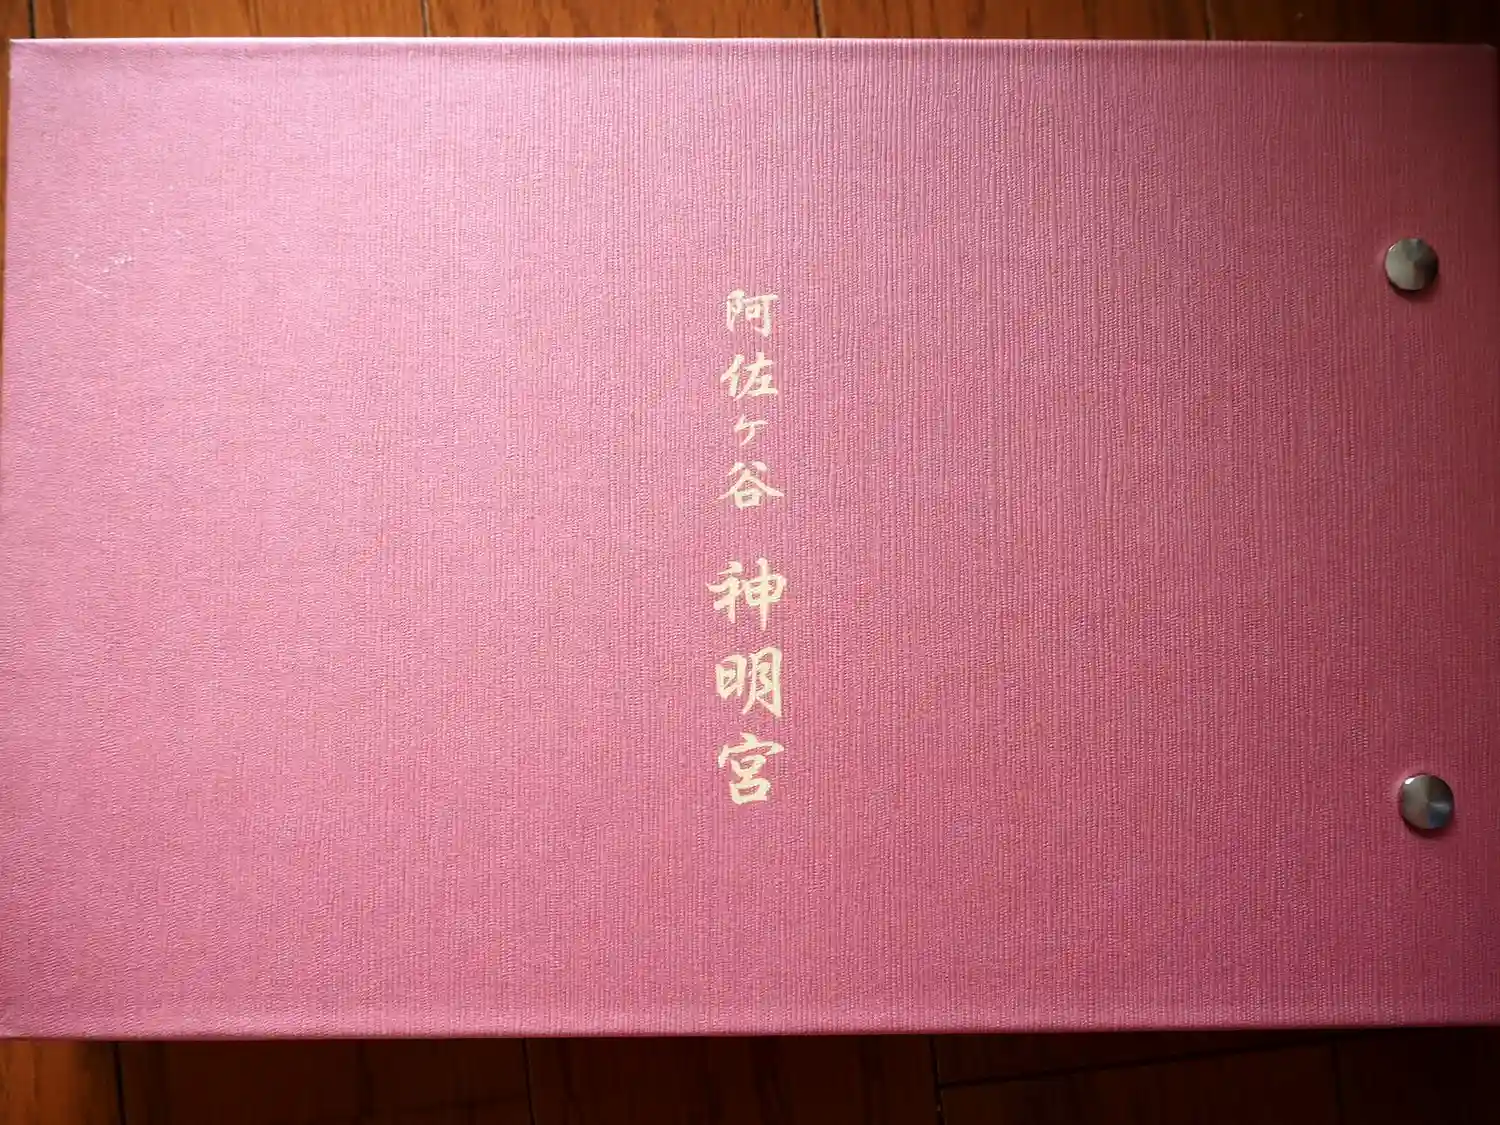 阿佐ヶ谷 神明宮